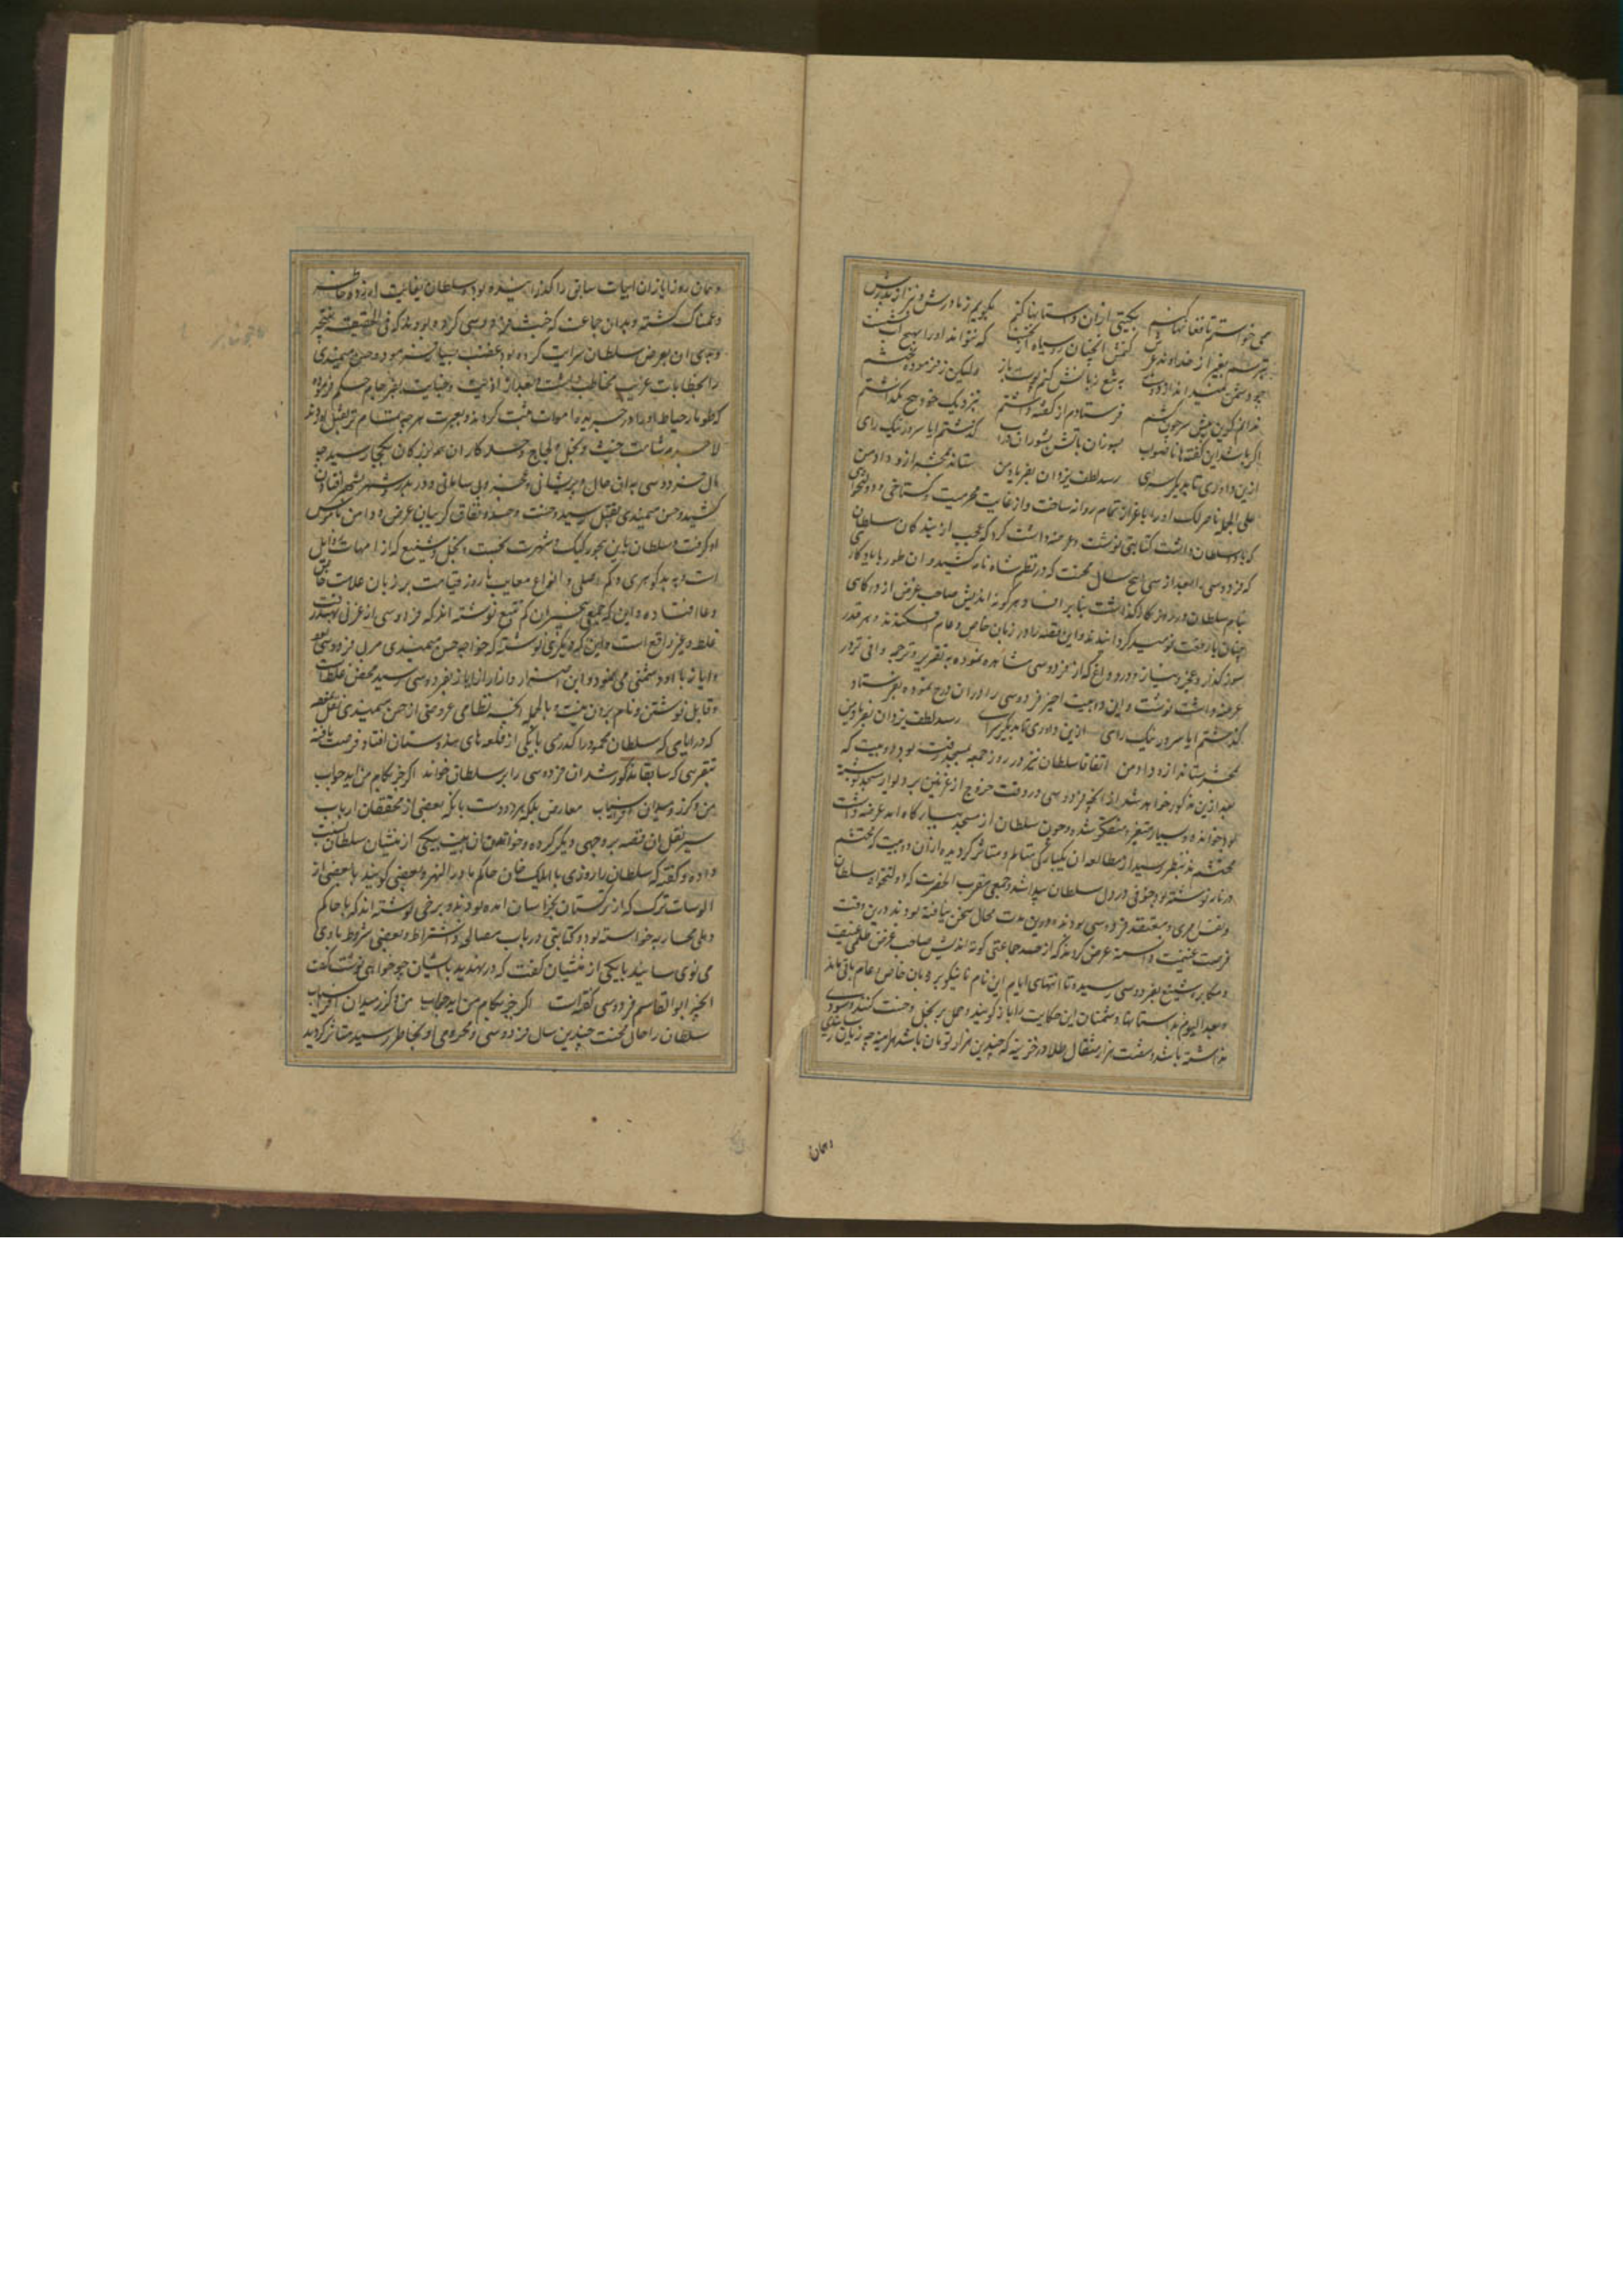 می خواستم تا فغانها کنم بگیتی ازان داستانها کنم
بگویم ز مادرش و نیز از پدرش نترسم بغیر از خداوند عرش
کنمش انچنان روسیاه از نخست که نتواند اورا بهیچ آب شست
چو دشمن نمیداند از دوست باز به تیغ زبانش کنم پوست باز
ولیکن ز فرموده محتشم ندانم کزین پیش سر چون کشم
فرستادم از گفته داشتم بنزدیک خود هیچ نگذاشتم
اگر باشد این گفته ها ناصواب بسوزان باتش بشوران در آب
گذشتم ایا سرور نیک رای ازین داوری تا بدیگر سرای
رسد لطف یزدان بفریاد من ستاند بمحشر ازو داد من
علی الجمله ناصر لک اورا باعزاز تمام روانه ساخت و از غایت محرمیت و گستاخی و دولتخواهی
که با سلطان داشت کتابتی نوشت و عرضه داشت کرد که عجب از بندگان سلطان
که فردوسی بعد از سی پنج سال محنت که در نظم شاه نامه کشید و ان طور یادگاری
بنام سلطان در روزگار گذاشت بنابر افساد هرگونه اندیش صاحب غرض از درگاهی
چنان بارفعت نومید گردانیدند و این قصه را در زبان خاص و عام افکندند و هر قدر
سوز گداز و عجز و نیاز و درد و داغ که از فردوسی مشاهده نموده به تقریر و ترجمه وافی در
عرضه داشت نوشت و این دو بیت اخیر فردوسی را دران درج نموده بفرستاد
گذشتم ایا سرور نیک رای ازین داوری تا بدیگر سرای رسد لطف یزدان بفریاد من
بمحشر ستاند ازو داد من اتفاقا سلطان نیز در روز جمعه بمسجد رفته بود دو بیت که
بعد ازین مذکور خواهد شد از انچه فردوسی در وقت خروج از غزنین بر دیوار مسجد نوشته
بود بخوانده و بسیار متغیر و متفکر شده و چون سلطان از مسجد ببارگاه امد عرضه داشت
محتشم نیز بنظر رسید از مطالعه ان یکبارگی متالم و متاثر گردیده ازان دو بیت که محتشم
در نار نوشته بود خوفی در دل سلطان پیدا شد و جمعی مقرب الحضرت که دولتخواه سلطان
و نفس امری و معتقد فردوسی بودند و درین مدت محال سخن نیافته بودند درین وقت
فرصت غنیمت دانسته عرض کردند که از حسد جماعتی کوته اندیش صاحب غرض ظلمی عنیف
و مکابره شنیع بفردوسی رسیده تا انتهای ایام این نام نانیکو بر زبان خاص و عام باقی ماند
و بعد الیوم در داستانها دشمنان این حکایت را باز گویند و حمل بر بخل و خست کنند و سودی
نداشته باشد و شصت هزار مثقال طلا در خزینه که چندین هزار تومان باشد هرآینه چه زیان رساندی
همان
همان روز ایاز ان ابیات سابق را گذرانیده بود سلطان بغایت ازرده خاطر
و غمناک گشته و بدان جماعت که خبث فردوسی کرده بودند که فی الحقیقت نتیجه
و بدی ان بعرض سلطان سرایت کرده بود غضب بسیار فرموده و حسن میمندی
را بخطابات عزت مخاطب داشت و بعد از اذیت و جنایت بفرجام حکم فرموده
که طومار حیاط او را در جریده اموات مثبت کردند و بعبرت هرچه تمام تر بقتل اوردند
لاجرم شامت خبث و بخل و لجاج و حسد کار ان بدروزگان بکجا رسید چه
مال فردوسی بدان حال و پریشانی و محزونی و بی سامانی و در بدر و شهر بشهر افتادن
کشید و حسن میمندی بقتل رسید و خست و حسد و نفاق گریبان عرض و دامن ناموس
او گرفت و سلطان باین بجور کیک و شهرت بخست و بخل و شنیع که از امهات رذایل
است و به بدگوهری و کم اصلی و انواع معایب تا روز قیامت بر زبان علامت خاص
و عام افتاده و این که جمعی بیخبران کم تتبع نوشته اند که فردوسی از غزنی بهند رفت
غلط و غیر واقع است و این که دیگری نوشته که خواجه حسن میمندی مربی فردوسی بود
و ایاز با او دشمنی می نمود و این آزار از ایاز بفردوسی رسید محض غلط است
و قابل نوشتن و نام بردن نیست و بالجمله انچه نظامی عروضی از حسن میمندی نقل نموده
که در ایامی که سلطان محمود را گذری بایکی از قلعه های هندوستان افتاد فرصت یافته
بتقریبی که سابقا مذکور شد ان فردوسی را بر سلطان خواند اگر جز بکام من اید جواب
من و گرز و میدان و افراسیاب معارض بلکه مردود است بانکه بعضی از محققان ارباب
سیر نقل ان قصه بر وجهی دیگر کرده و خواندن ان بیت بیکی از منشیان سلطان نسبت
داده و گفته که سلطان را روزی با ایلک خان حاکم ماوراالنهر و بعضی گویند با بعضی از
الوسات ترک که از ترکستان بخراسان امده بودند و برخی نوشته اند که با حاکم
دهلی محاربه خواسته بود و کتابتی در باب مصالح و اشتراط و بعضی شروط باوی
می نوی سانید با یکی از منشیان گفت که در تهدید باایشان چه خواهی نوشت گفت
انچه ابوالقاسم فردوسی گفته است اگر جز بکام من اید جواب من و گرز و میدان و افراسیاب
سلطان را حال محنت چندین سال فردوسی و محرومی او بخاطر رسید متاثر گردید